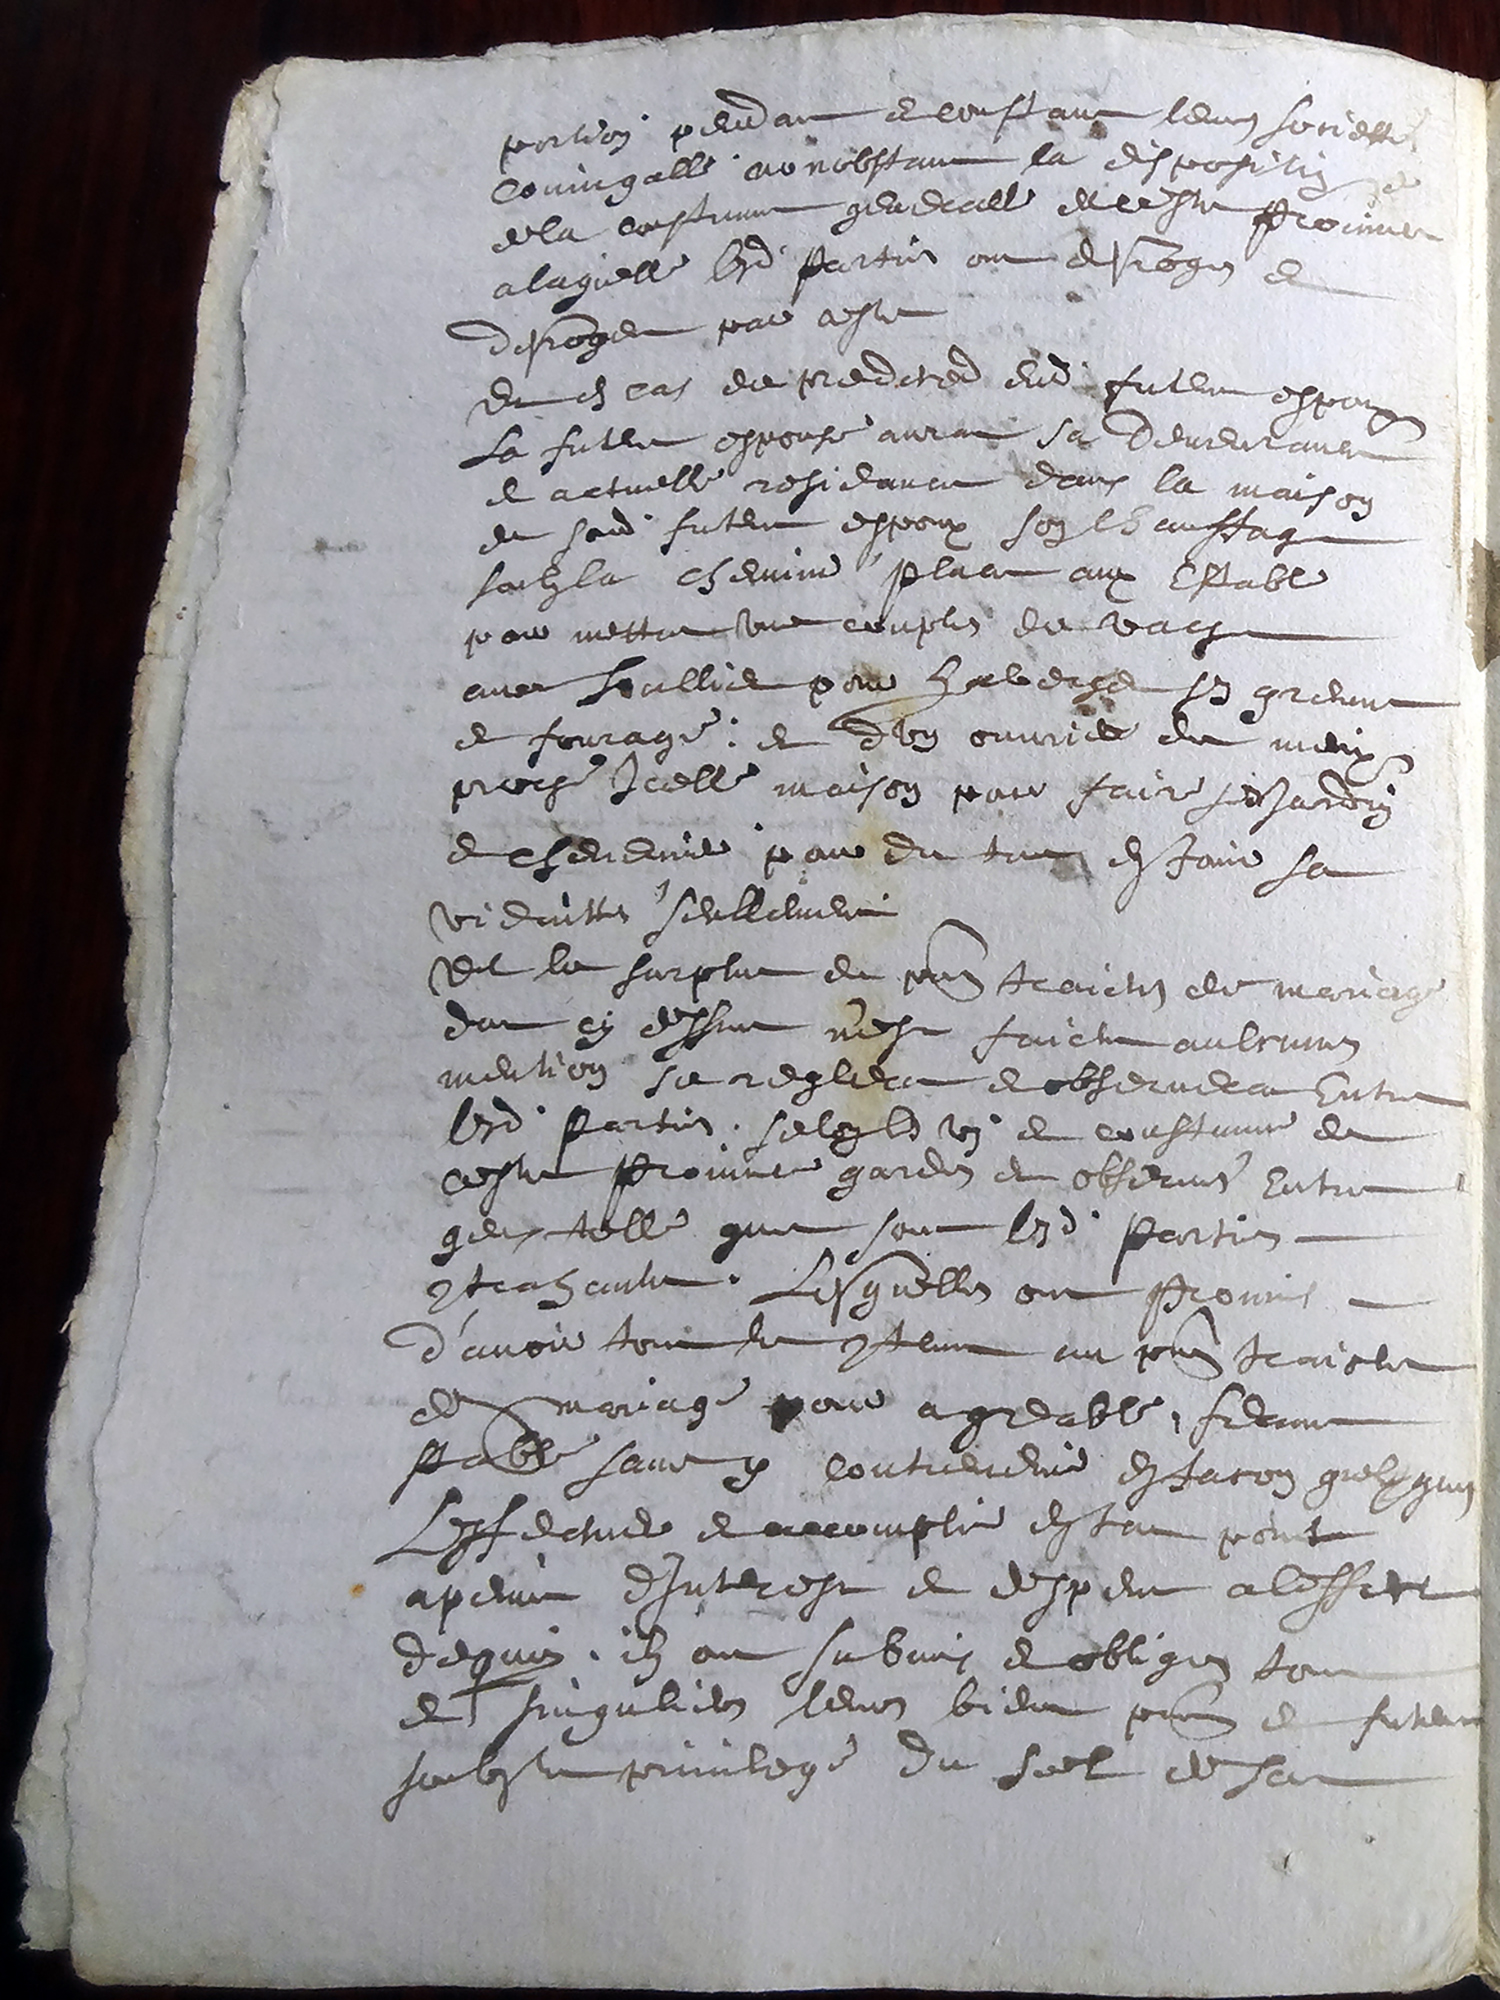 portion pendant et constant leurs societté
coniugalle nonobstant la disposition
de la coustume generalle de ceste Prouince
a laquelle lesd. Parties ont desrogés et
desrogent par ceste
Et en cas de predeced dud. futur espoux
La future espouse aurat sa demeurance
et actuelle residance dans la maison
du sud. futur espoux son chauffage
soubz la cheminé place aux Estable
pour mettre vne couples de vache
auec pour heberger ses
et fourage : et d'vn ouurier de meix
proche Icelle maison pour faire ses Jardin
et cheneuie pour du tout en Jouir sa
viduittés seullement
Et le surplus du pnt traictez de mariage
dont cy dessus n'est faicte aulcunes
mention se reglera et obseruera Entre
lesd. Parties. selon les vz et coustume de
ceste Prouince gardés et obserués Entre
gens telle que sont lesd. Parties
ctrahante. Lesquelles ont Promis
d'auoir tout le ctenu au pnt traicté
de mariage pour agreable, ferme
stable sans y contreuenir en facon quelconque
L'effectuer et accomplir en tout point
a peine d'Interest et despens a l'effect
dequoy. ilz ont submis et obliges tous
et singuliers leurs biens pns et futurs
soubz le priuilege du seel de sa